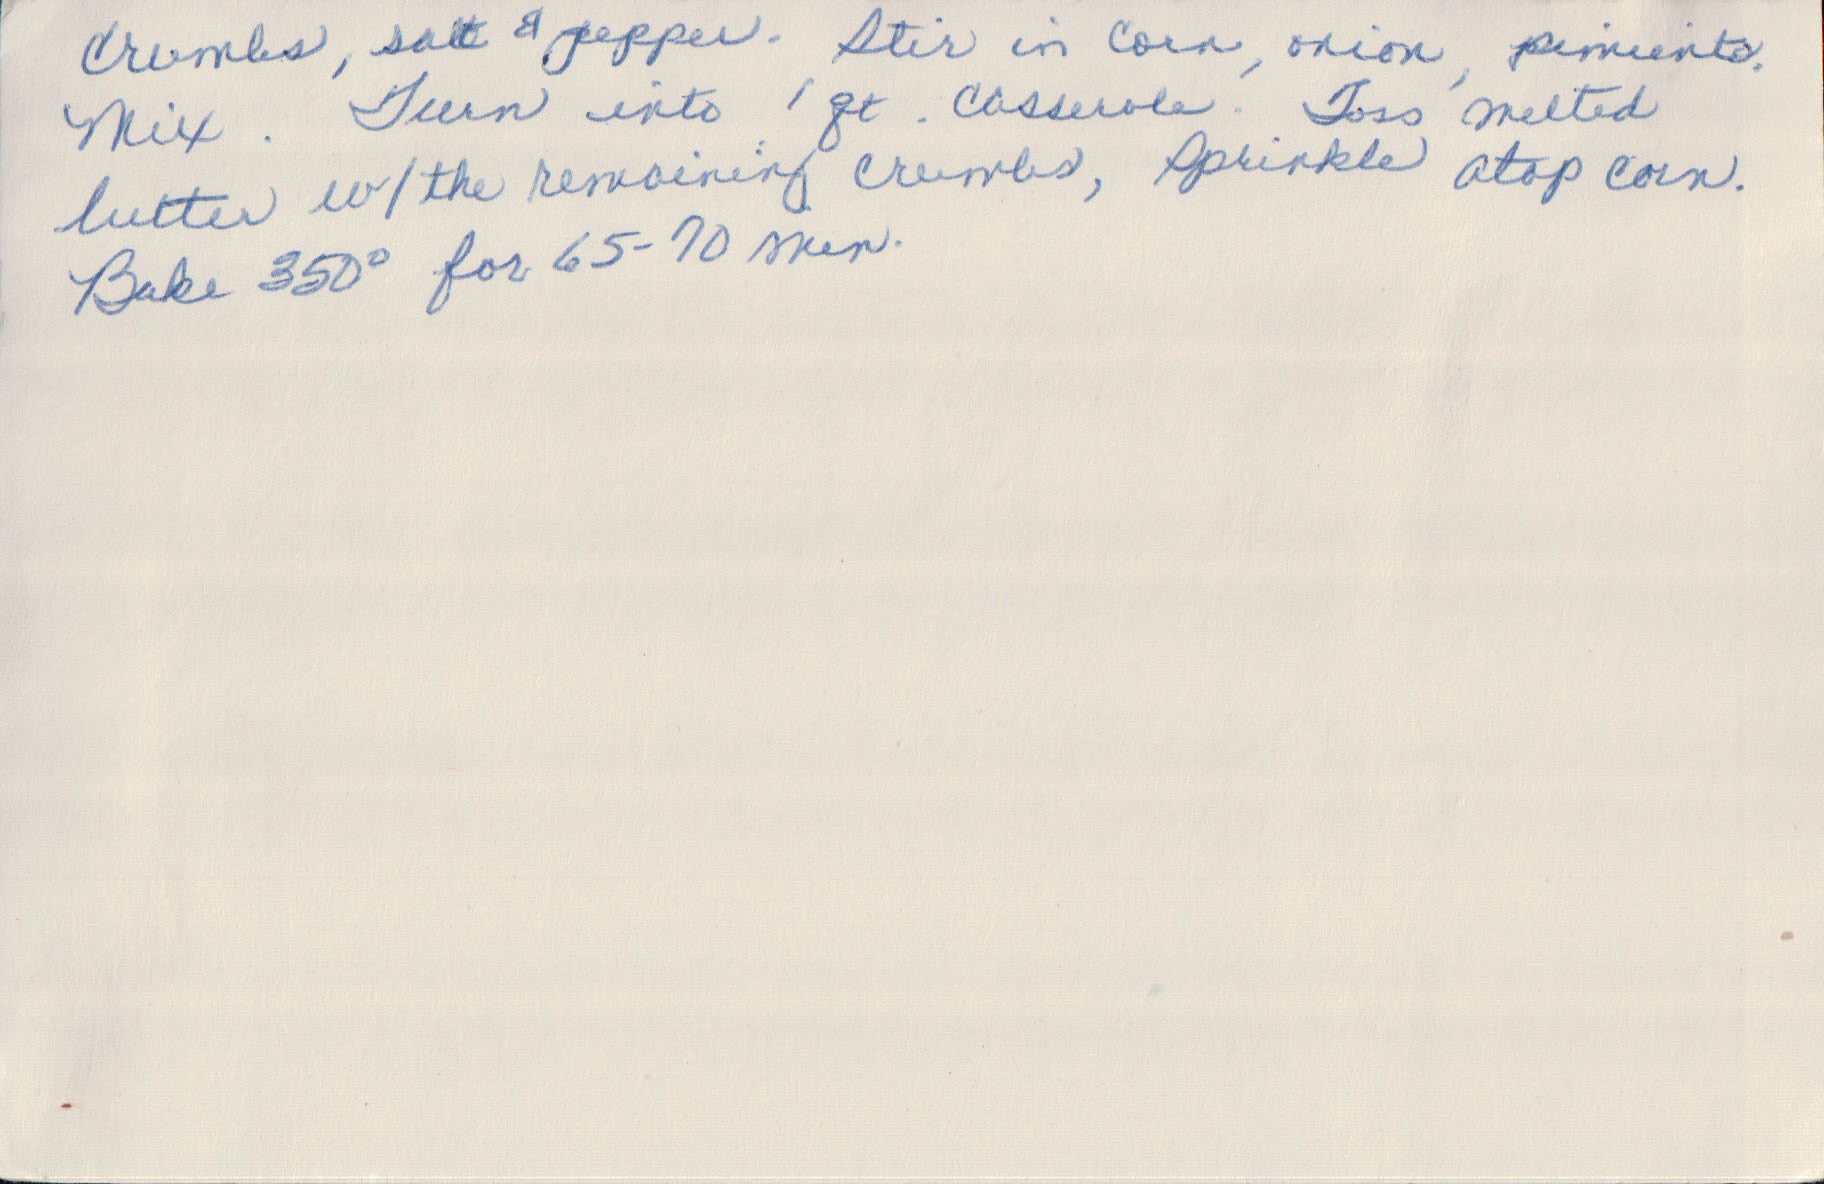 crumbs, salt & pepper. Stir in corn, onion, pimiento.
Mix. Turn into 1 qt. casserole. Toss melted
butter w/the remaining crumbs, sprinkle atop corn.
Bake 350° for 65-70 min.